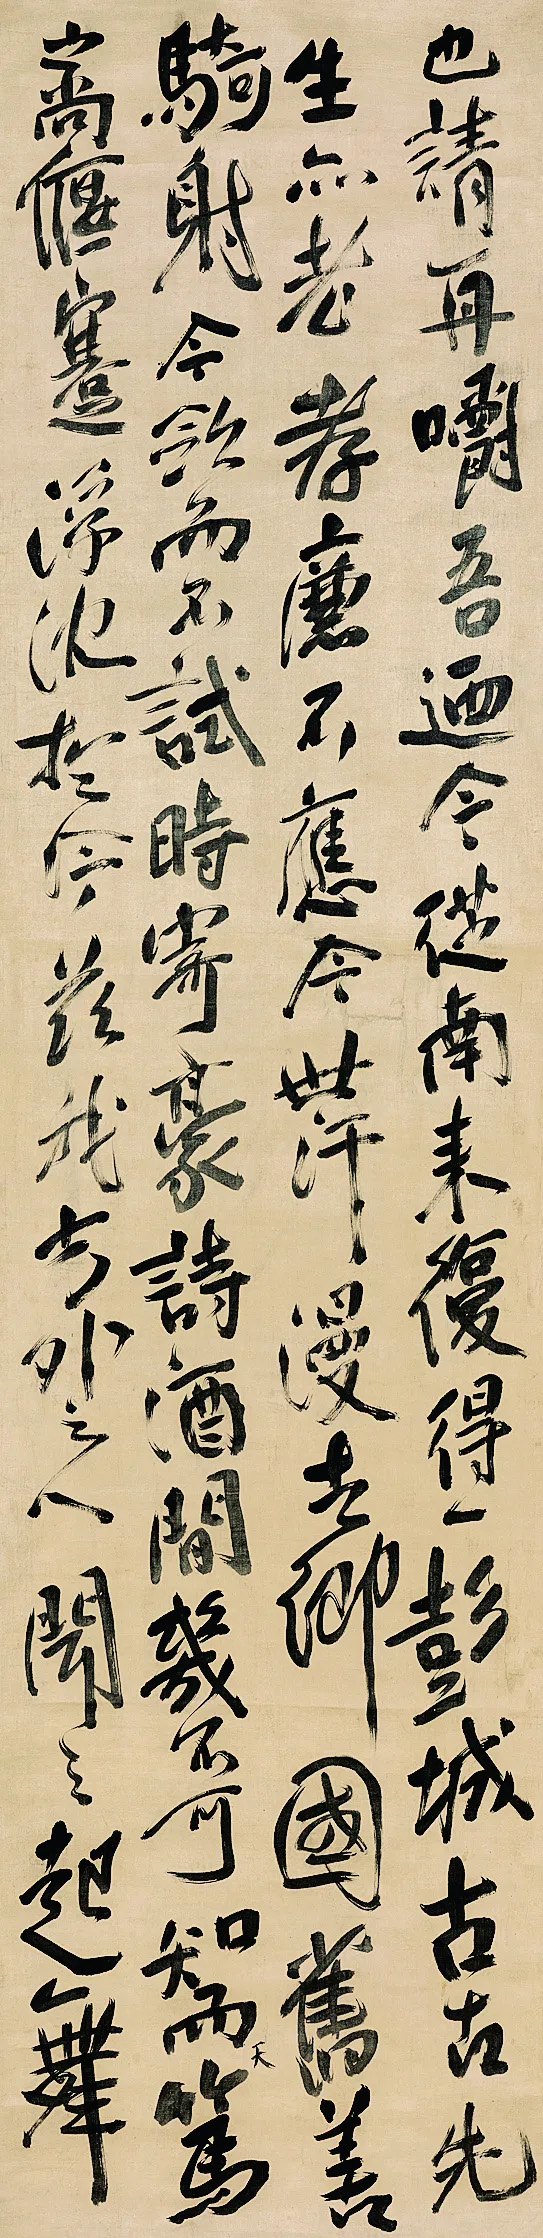 也請再嚼吾迺今從南来復得一彭城古古先
生亦老孝廉不應今世汗漫去鄉國舊善
騎射今斂而不試時寄豪詩酒間幾不可知而天篤
尚偃蹇浮沈於今茲我方外之人聞之起舞